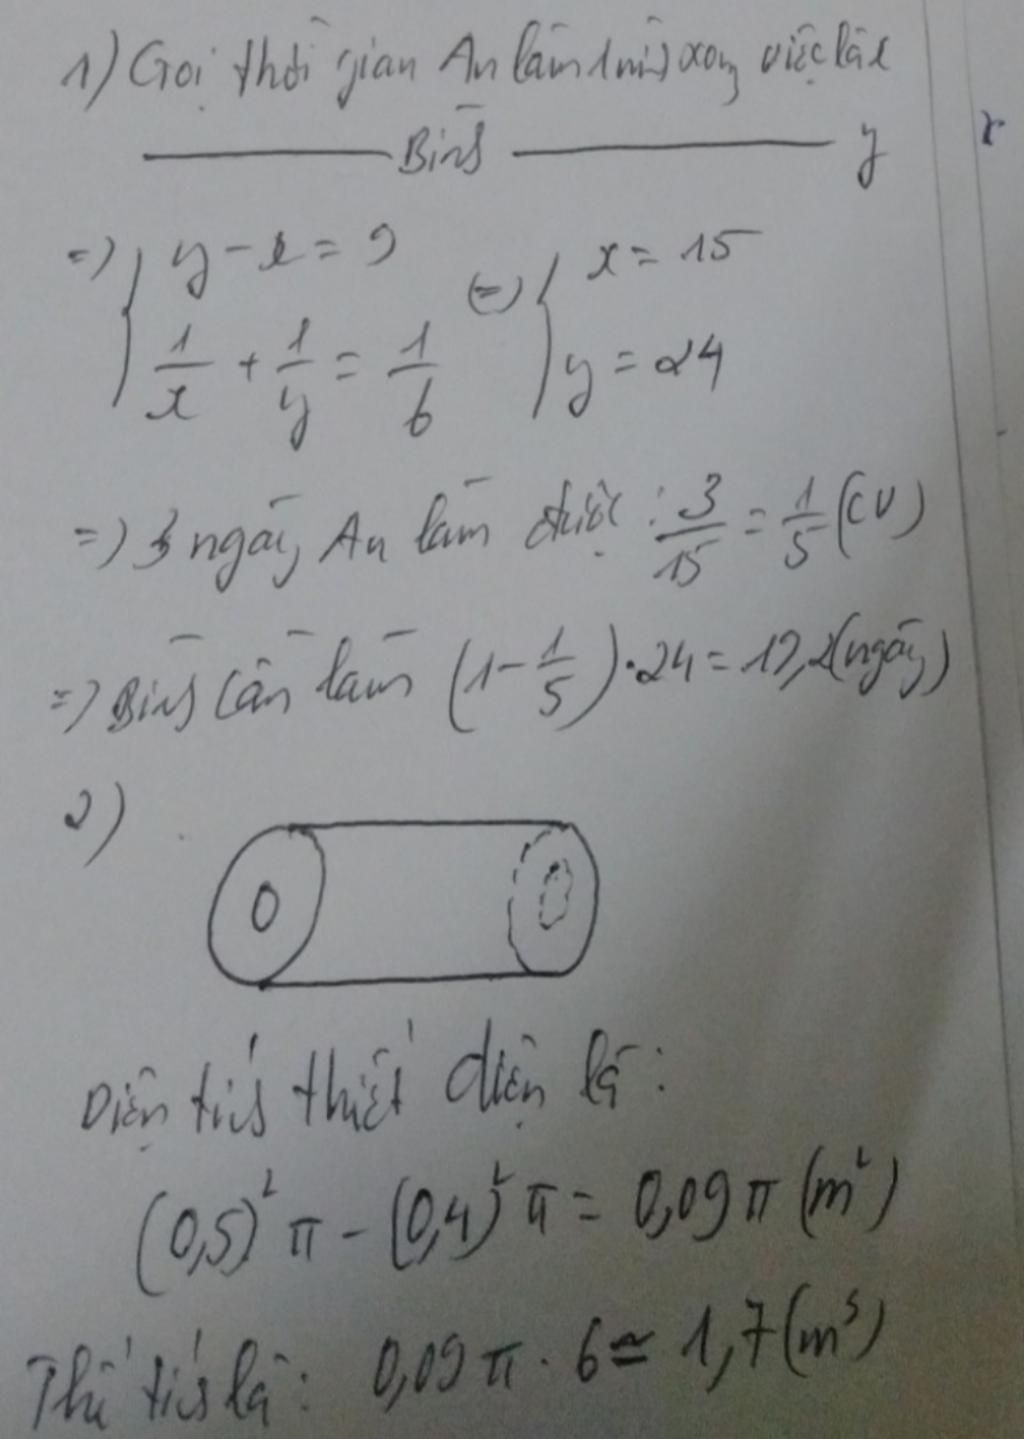 1) Gọi thời gian An làm 1 mình xong việc là x
Bình y
=> { y - x = 9 (=) { x = 15
1/x + 1/y = 1/6 y = 24
=> 3 ngày An làm được : 3/15 = 1/5 (CV)
=> Bình cần làm (1 - 1/5) . 24 = 19,2 (ngày)
2)
Diện tích thiết diện là :
(0,5)² π - (0,4)² π = 0,09 π (m²)
Thể tích là : 0,09 π . 6 ≃ 1,7 (m³)